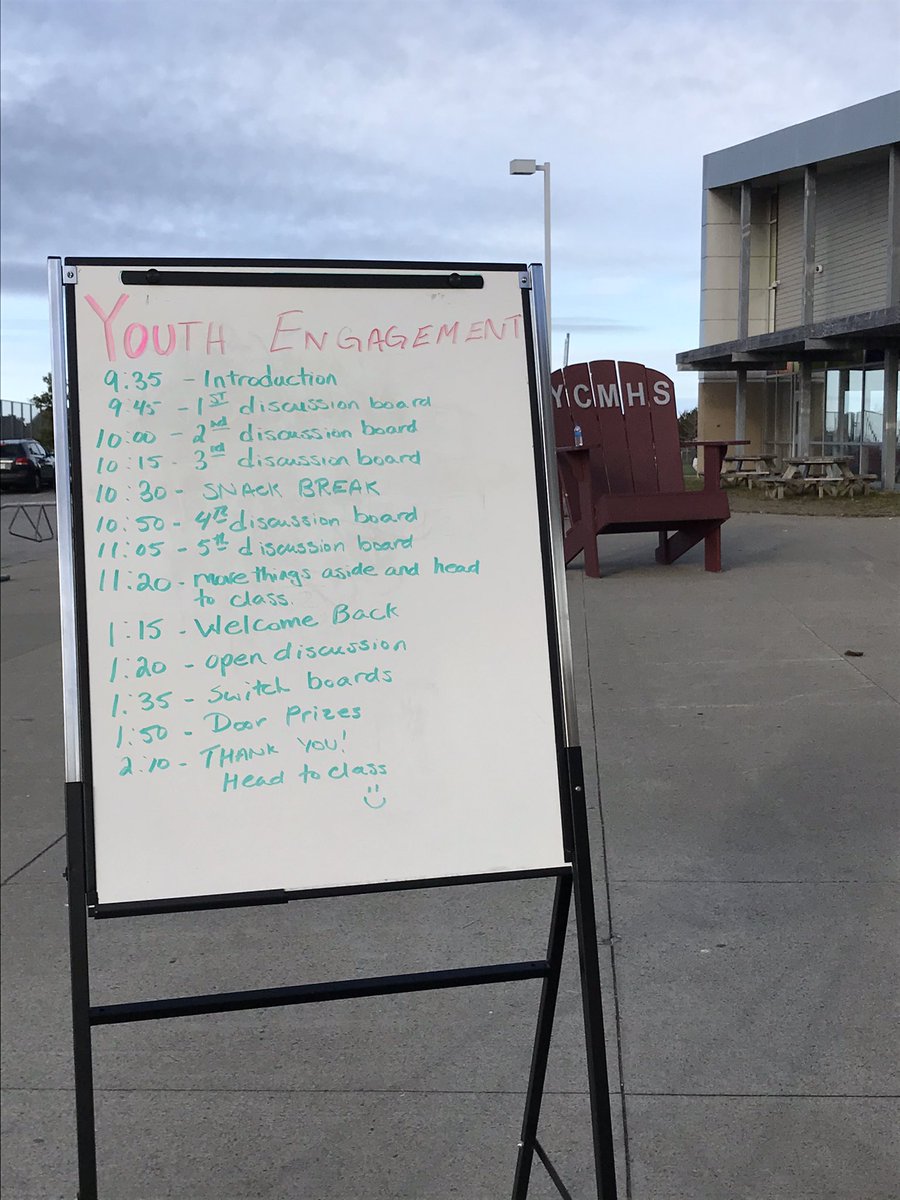 YOUTH ENGAGEMENT
9:35 - Introduction
9:45 - 1ST discussion board
10:00 - 2nd discussion board
10:15 - 3rd discussion board
10:30 - SNACK BREAK
10:50 - 4th discussion board
11:05 - 5th discussion board
11:20 - move things aside and head
to class.
1:15 - Welcome Back
1:20 - open discussion
1:35 - Switch boards
1:50 - Door Prizes
2:10 - THANK YOU!
Head to class
YCMHS